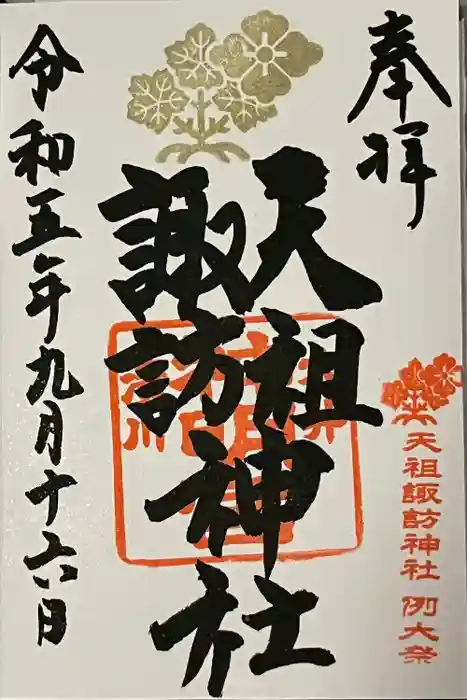 奉拝
天祖
諏訪神社
令和五年九月十六日
天祖諏訪神社 例大祭